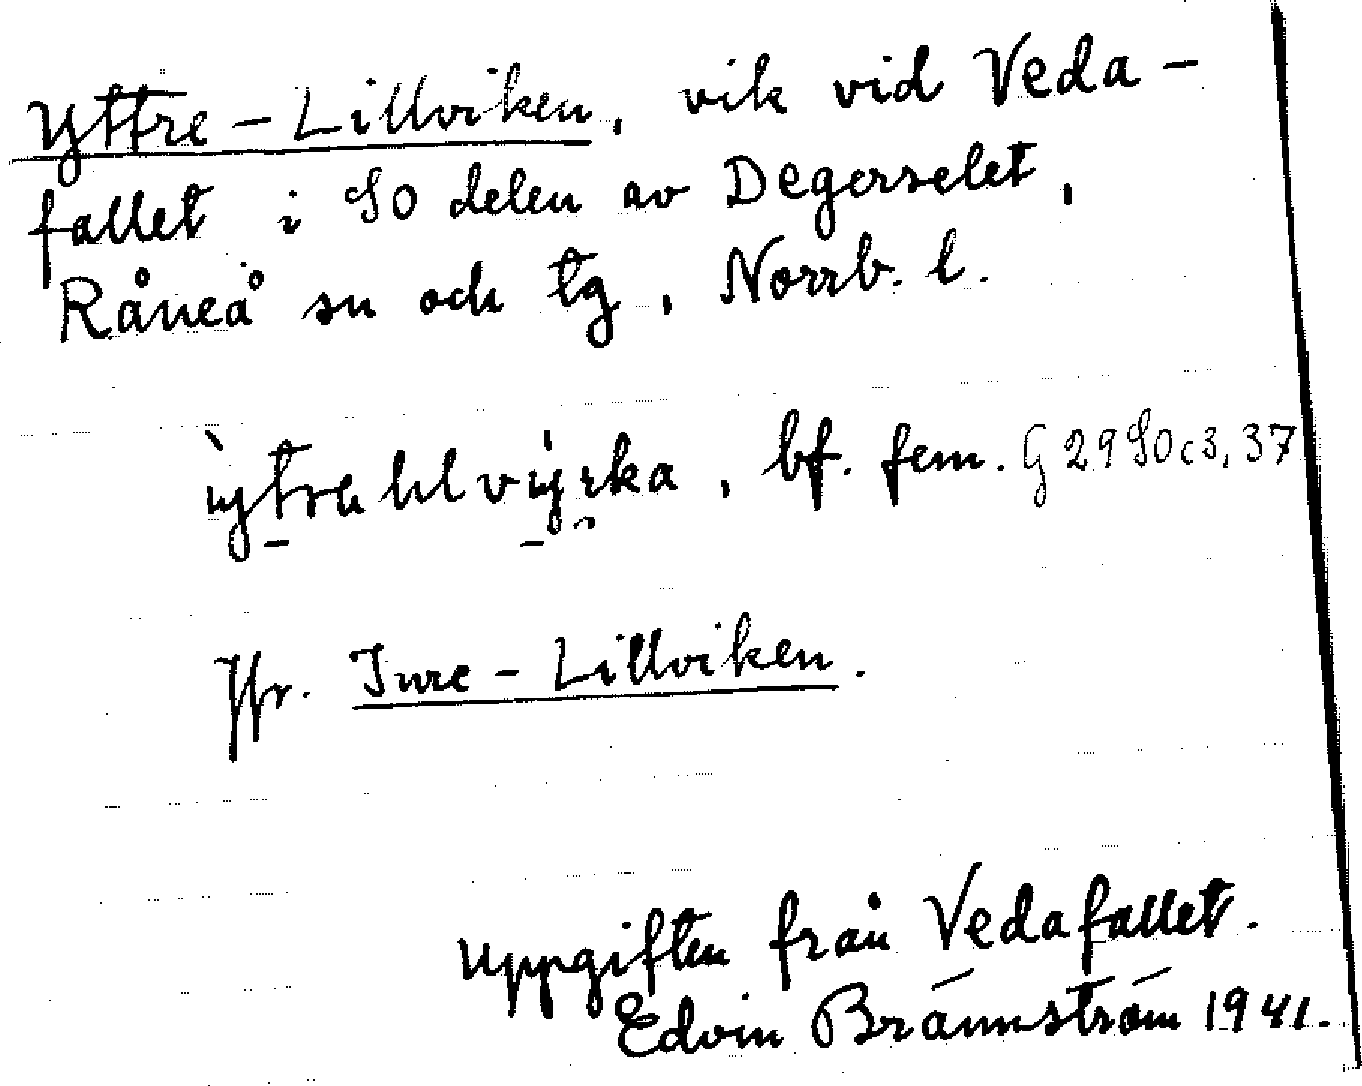 Yttre-Lillviken, vik vid Veda-
fallet i SO delen av Degerselet,
Råneå sn och tg, Norrb. l.
bf. fem. G 29 SO c 3, 37
Jfr. Inre-Lillviken.
Uppgiften från Vedafallet.
Edvin Brännström 1941.